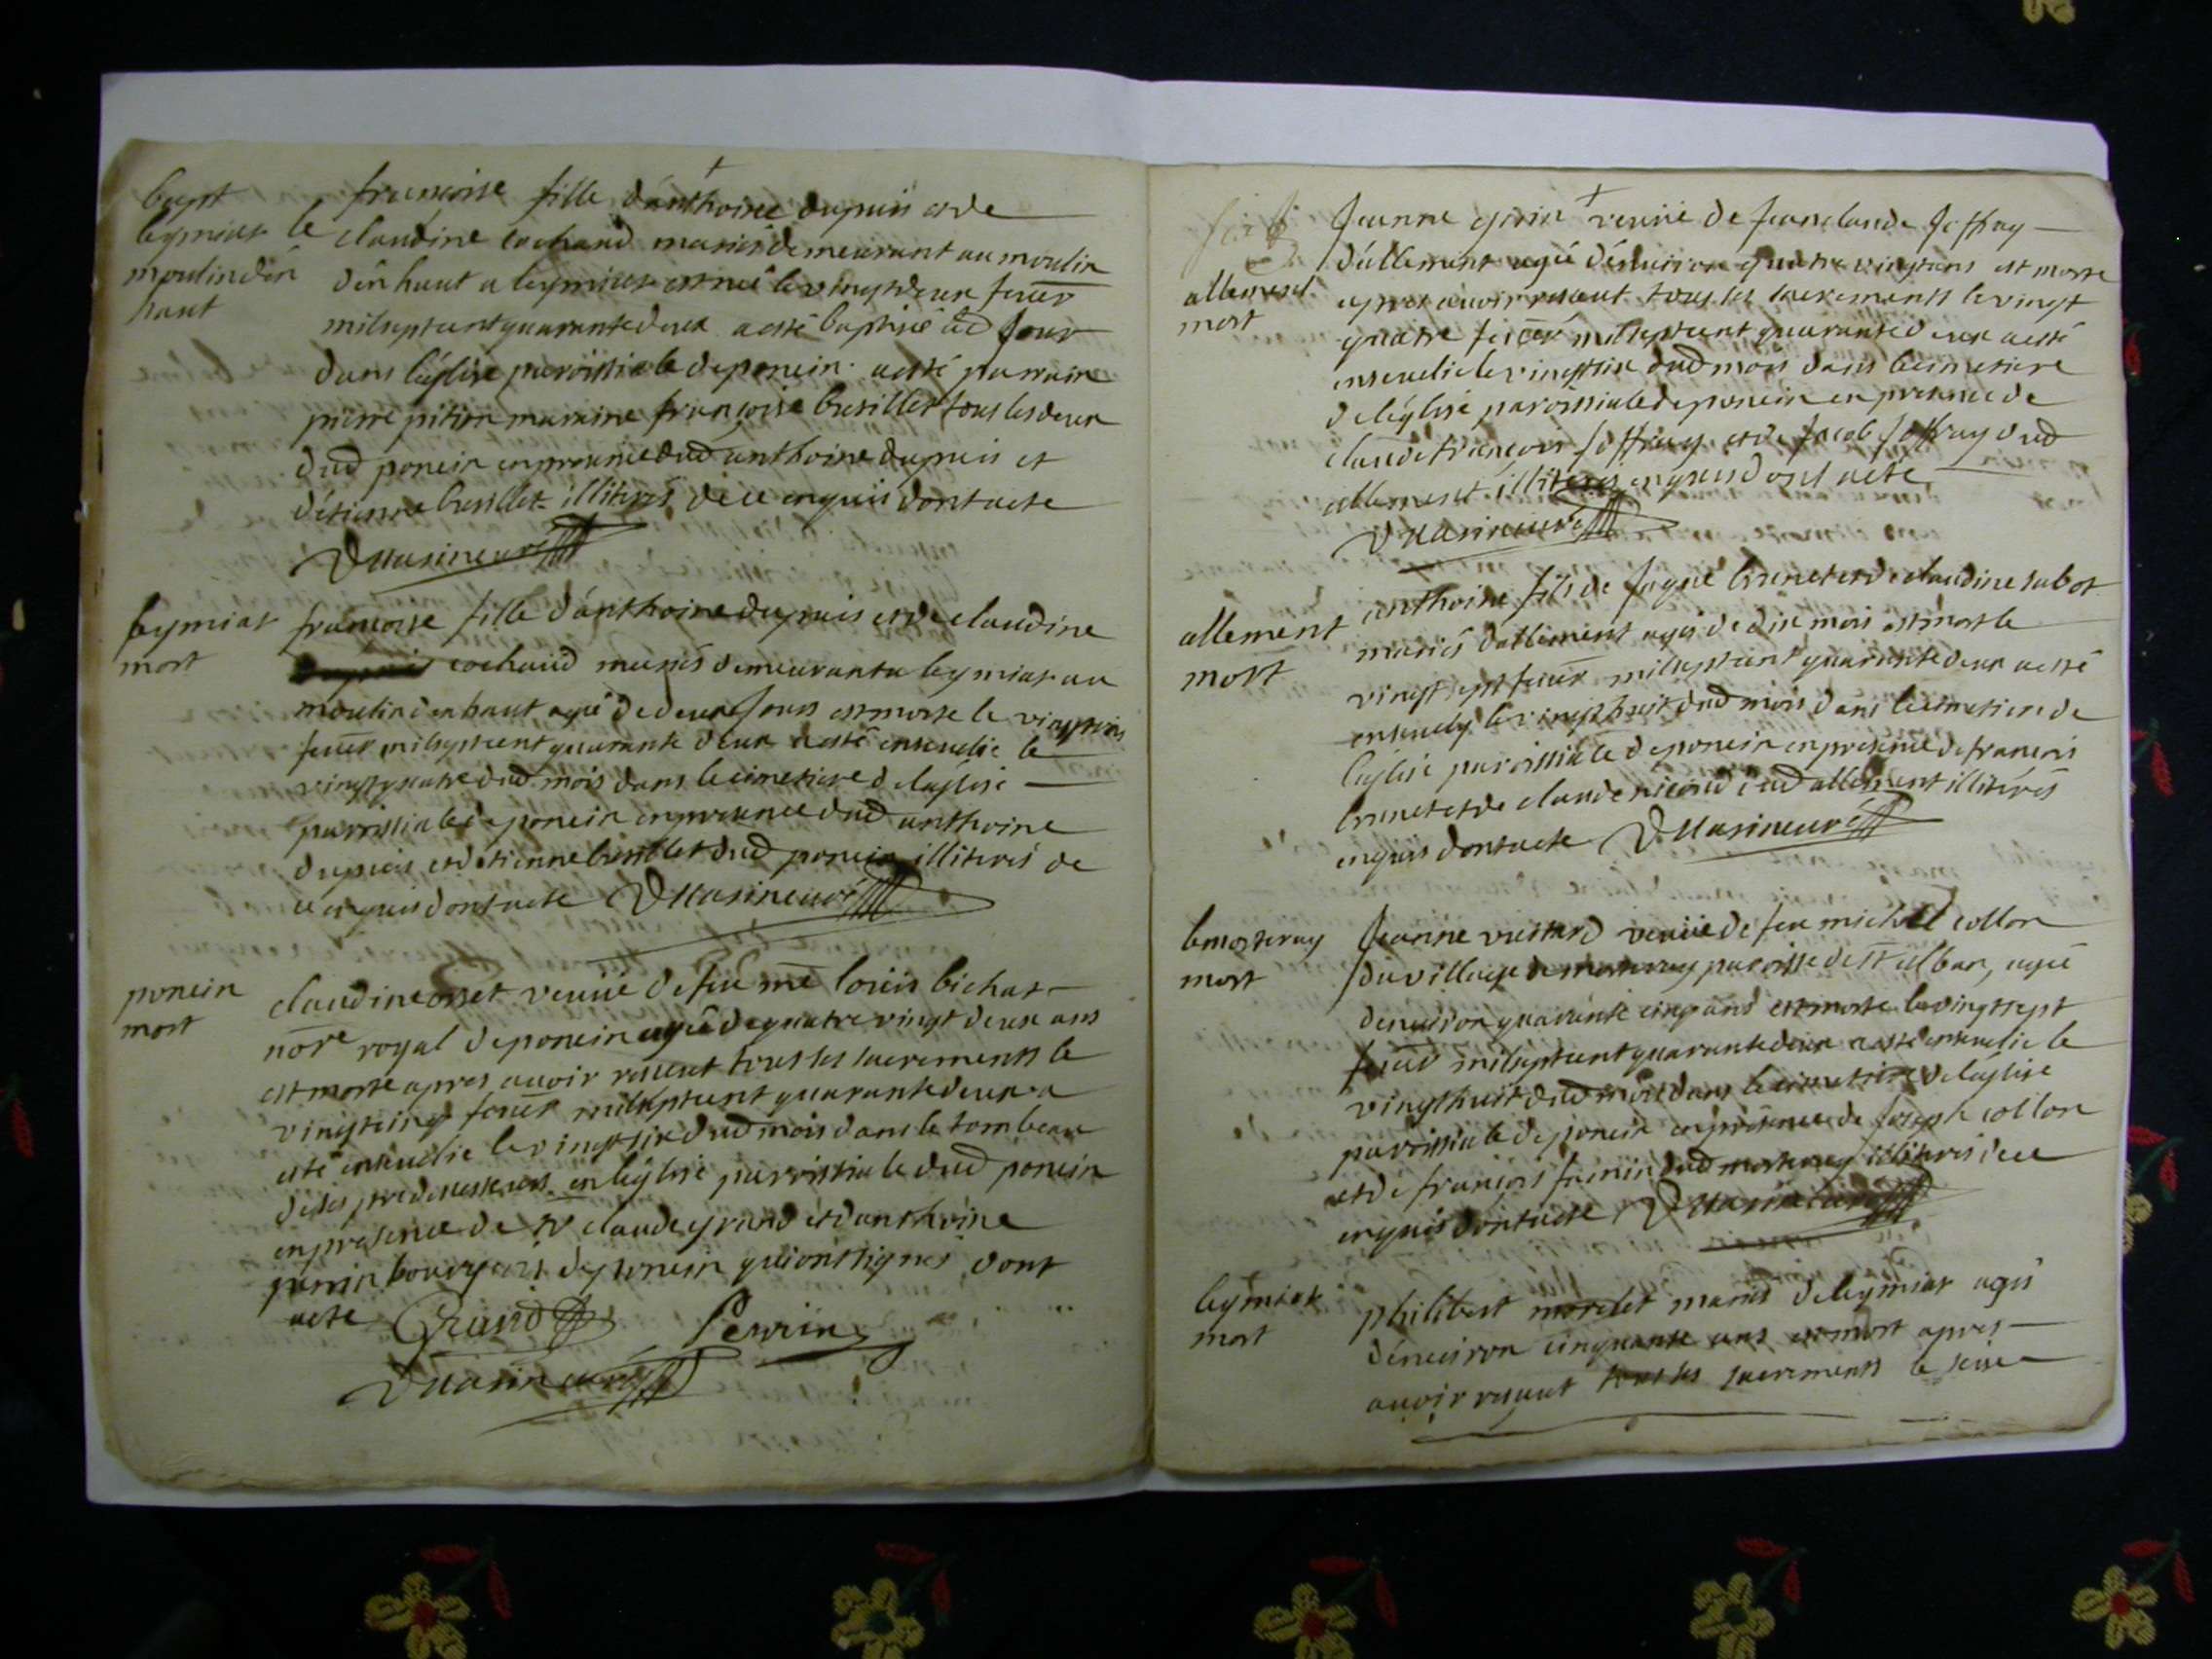 bapt
leymiat le
moulin d'en
haut
francoise fille d'anthoine dupuis et de
claudine cochand mariés demeurant au moulin
d'en haut a leymiat est neé le vingt deux feuer
mil sept cent quarante deux a esté baptiseé led jour
dans l'église paroissiale de poncin a esté parrain
pierre pition marraine françoise brésillet tous les deux
dud poncin en presence dud anthoine dupuis et
d'etienne bresillet illiterés de ce enquis dont acte
leymiat
mort
francoise fille d'anthoine dupuis et de claudine
cochand mariés demeurant a leymiat au
moulin d'en haut ageé de deux jours est morte le vingt trois
feuer mil sept cent quarante deux a esté ensevelie le
vingt quatre dud mois dans le cimetiere de l'église
parroissiale de poncin en presence dud anthoine
dupuis et d'etienne bresillet dud poncin illiterés de
ce enquis dont acte
poncin
mort
claudine veuve de feu me loüis bichat
nore royal de poncin ageé de quatre vingt deux ans
est morte apres avoir receut tous les sacrements le
vingt cinq feuer mil sept cent quarante deux a
esté ensevelie le vingt six dud mois dans le tombeau
de ses predecesseurs en l'église parroissiale dud poncin
en presence de sr claude grand et d'anthoine
perrin bourgeois de poncin qui ont signés dont
acte Grand Perrin
allement
mort
Jeanne veuve de Jean claude Joffray
d'allement ageé d'environ quatre vingt ans est morte
apres avoir receut tous les sacrements le vingt
quatre feuer mil sept cent quarante deux a esté
ensevelie le vingt six dud mois dans le cimetiere
de l'église paroissiale de poncin en presence de
claude françois Joffray et de Jacob Joffray dud
allement illiterés enquis dont acte
allement
mort
anthoine fils de Jaque brunet et de claudine sabot
mariés d'allement agé de dix mois est mort le
vingt sept feuer mil sept cent quarante deux a esté
ensevely le vingt huit dud mois dans le cimetiere de
l'église paroissiale de poncin en presence de francois
brunet et de claude dud allement illitérés
enquis dont acte
mort
Jeanne veuve de feu michel collon
du village de paroisse de st alban, ageé
d'environ quarante cinq ans est morte le vingt sept
feuer mil sept cent quarante deux a esté ensevelie le
vingt huit dud mois dans le cimetiere de l'église
paroissiale de poncin en presence de Joseph collon
et de françois dud illiterés de ce
enquis dont acte
leymiat
mort
philibert morelet mariés de leymiat agé
d'environ cinquante ans est mort apres
avoir receut tous les sacrements le seise